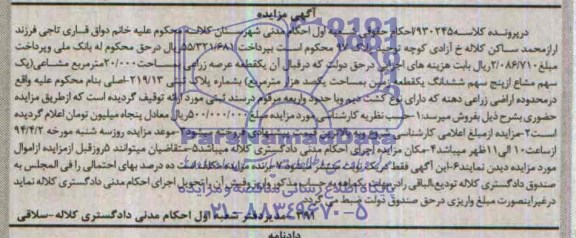 آگهی مزایده
درپرونده کلاسه ۹۳۰۲۴۵ احکام حقوقی شعبه اول احکام مدنی شهرستان کلاله محکوم علیه خانم دواق قاری تاجی فرزند
ارازمحمد ساکن کلاله خ آزادی کوچه توحید پلاک ۹۷ محکوم است بپرداخت ۵۵/۳۲۱/۶۸۱ ریال درحق محکوم له بانک ملی وپرداخت
مبلغ ۲/۰۸۶/۷۱۰ ریال بابت هزینه های اجرائی درحق دولت که درقبال آن یکقطعه عرصه زراعی بمساحت ۲۰/۰۰۰ مترمربع مشاعی (یک
سهم مشاع ازپنج سهم ششدانگ یکقطعه زمین بمساحت یکصد هزار مترمربع) بشماره پلاک ثبتی ۲۱۹/۱۳-اصلی بنام محکوم علیه واقع
درمحدوده اراضی زراعی دهنه که دارای نوع کشت دیم وبا حدود واربعه مرقوم درسند ثبتی مورد ارائه توقیف گردیده است که ازطریق مزایده
حضوری بشرح ذیل بفروش میرسد: ۱-حسب نظریه کارشناسی مورد مزایده مبلغ ۵۰۰/۰۰۰/۰۰۰ ریال معادل پنجاه میلیون تومان اعلام گردیده
است ۲-مزایده ازمبلغ اعلامی کارشناسی شروع وبه بالاترین قیمت پیشنهادی فروخته میشود ۳-موعد مزایده روزسه شنبه مورخه ۹۴/۴/۲
ازساعت ۱۰ الی ۱۱ ظهر میباشد ۴-مکان مزایده اجرای احکام مدنی دادگستری کلاله میباشد ۵-متقاضیان میتوانند ۵ روزقبل ازمزایده ازاموال
مورد مزایده دیدن نمایند ۶-این آگهی فقط در یک نوبت منتشر میشود ۷-برنده مزایده مکلف است ده درصد بهای احتمالی را فی المجلس به
صندوق دادگستری کلاله تودیع الباقی را در
درغیراینصورت مبلغ واریزی درحق صندوق دولت ضبط می گردد
۳۹۸۱ مدیردفتر شعبه اول احکام مدنی دادگستری کلاله-سلاقی
دادنامه
ParsNamadData
پایگاه اطلاع رسانی مناقصه و مزایده
۰۲۱-۸۸۳۴۹۶۷۰-۵